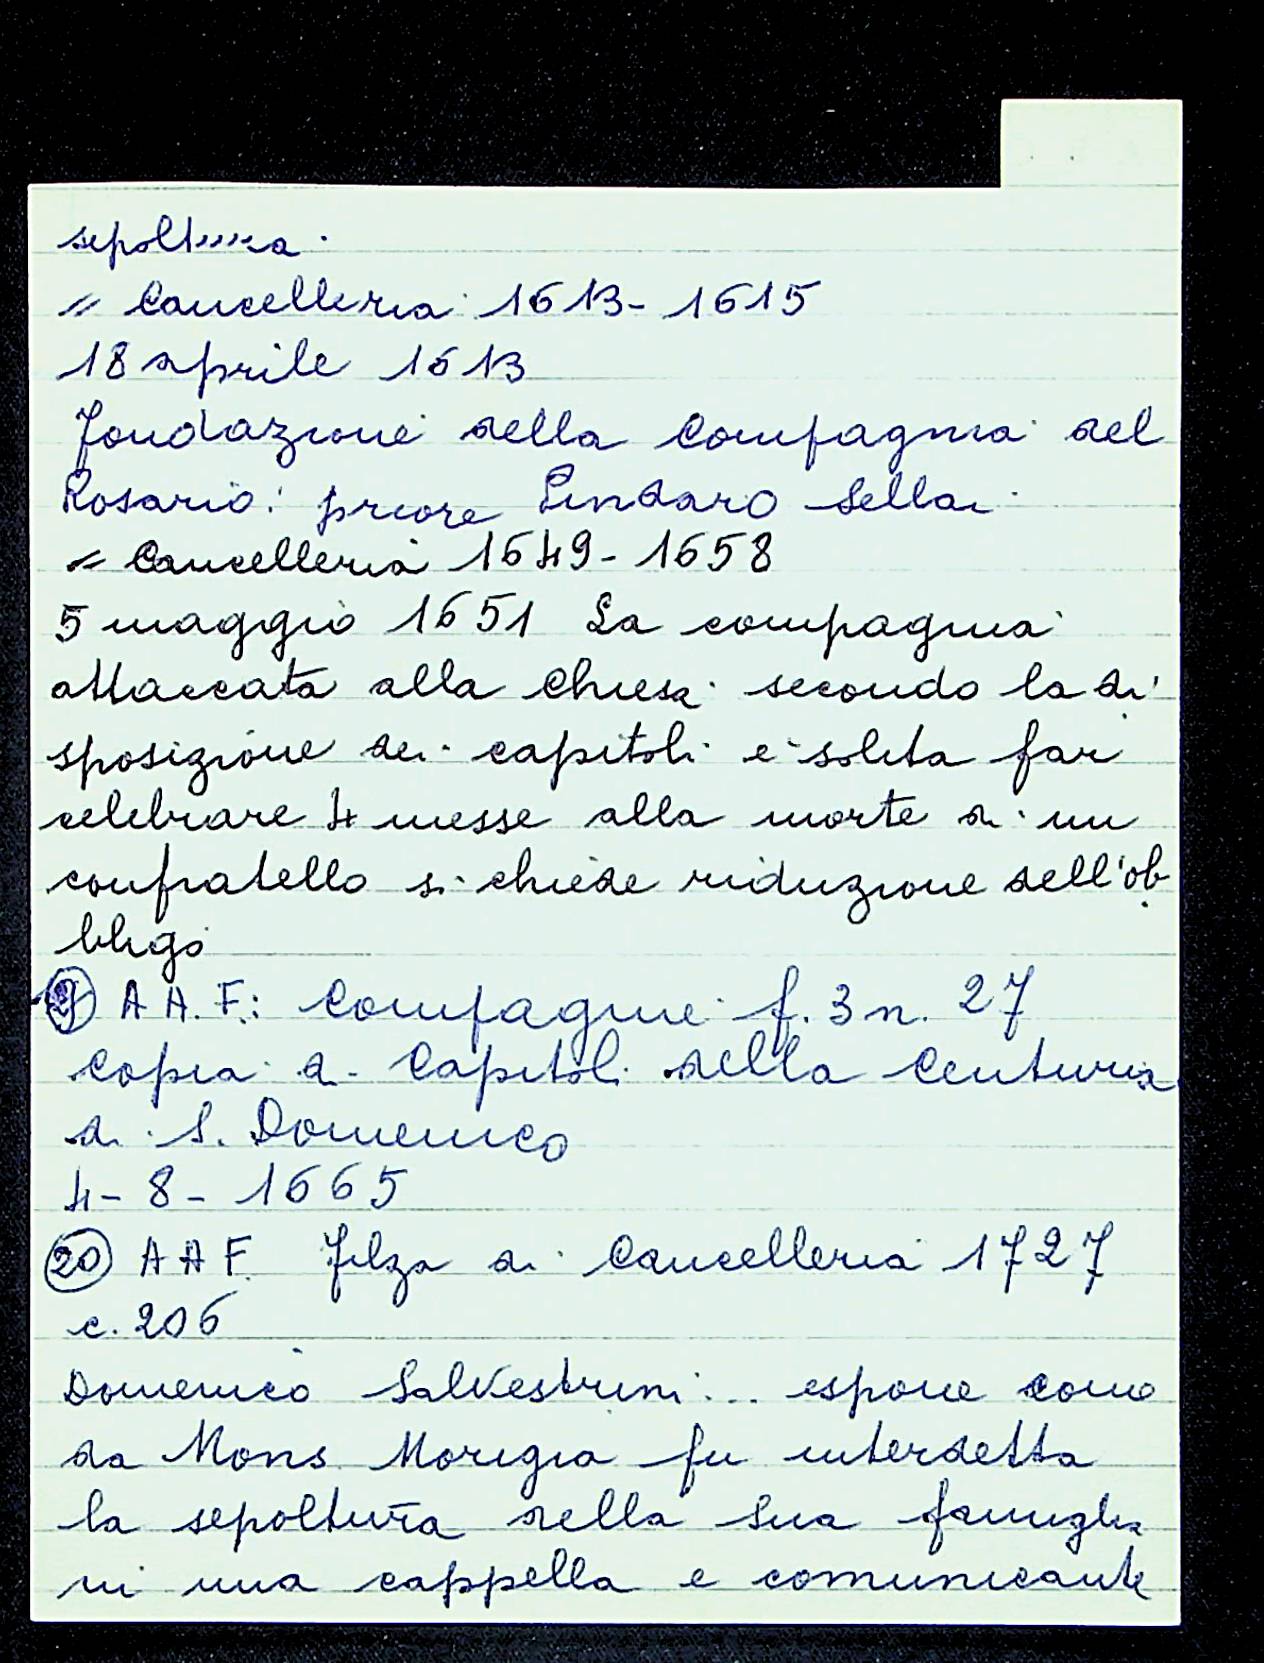 sepoltura.
" Cancelleria 1613-1615
18 aprile 1613
Fondazione della Compagnia del
Rosario: priore Pindaro Sellai
= Cancelleria 1649-1658
5 maggio 1651 La compagnia
attaccata alla Chiesa secondo la di
sposizione dei capitoli è solita far
celebrare 4 messe alla morte di un
confratello si chiede riduzione dell'ob
bligo
A A. F.: Compagnie f. 3 n. 27
Copia di Capitoli della Centuria
di S. Domenico
4-8-1665
20 A A F. Filza di Cancelleria 1727
c. 206
Domenico Salvestrini... espone come
da Mons. Morigia fu interdetta
la sepoltura della sua famiglia
in una cappella e comunicante